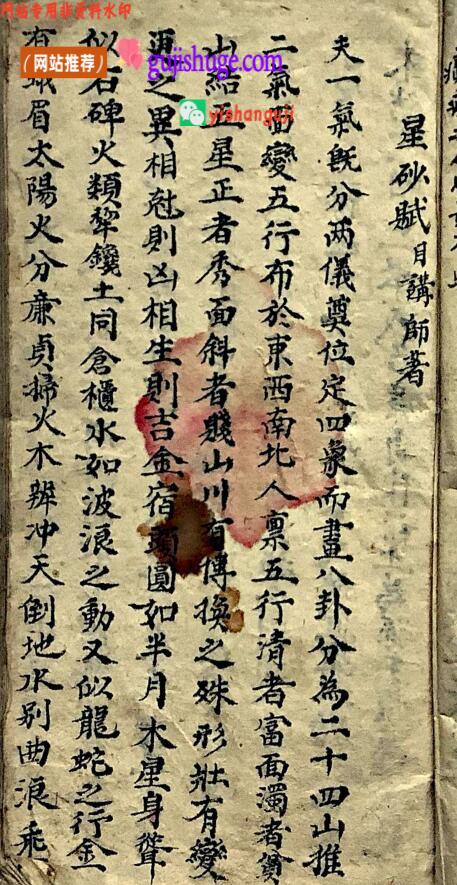 网站专用非资料水印
（网站推荐）
gujishuge.com
yishanguji
星砂賦目講師著
夫一氣既分两儀奠位定四象而畫八卦分為二十四山推
二氣而變五行布於東西南北人禀五行清者富而濁者貧
山結五星正者秀而斜者賤山川有傳換之殊形壯有變
更之異相尅則凶相生則吉金宿頭圓如半月木星身聳
似石碑火類犂鑱土同倉櫃水如波浪之動又似龍蛇之行金
有蛾眉太陽火分廉貞掃火木辨冲天倒地水別曲浪乖